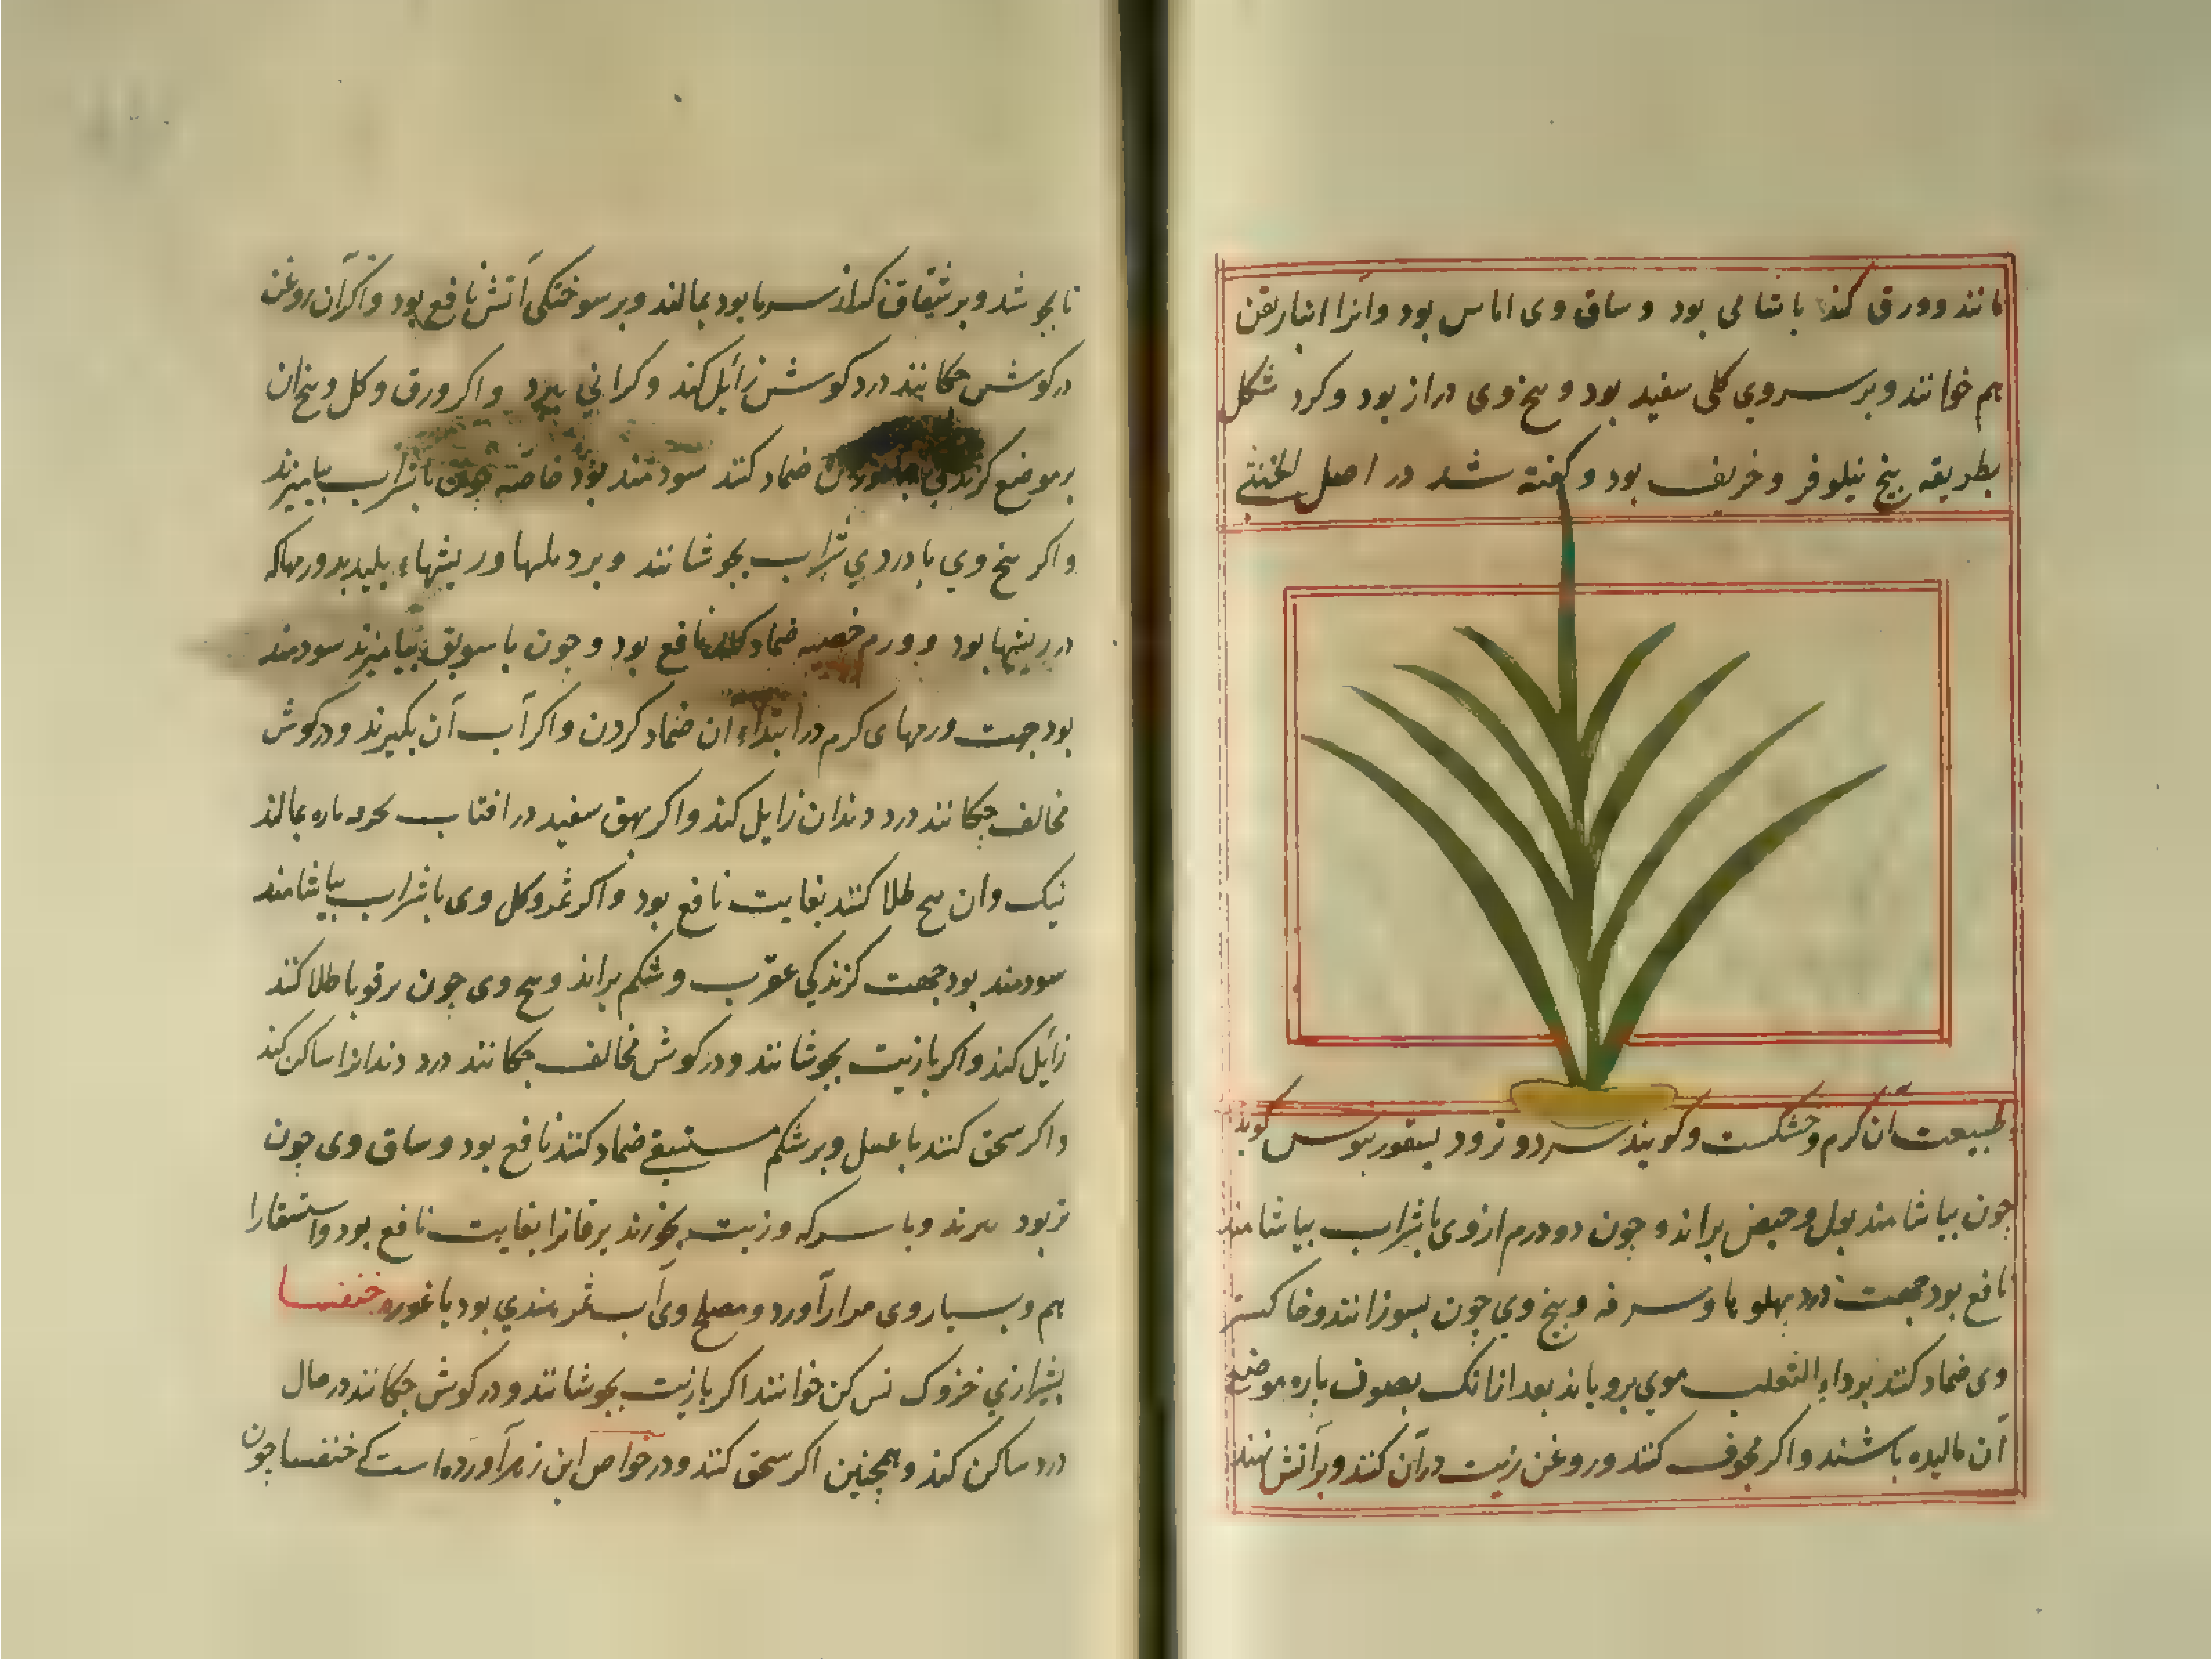 مانند وورق کندنا شامی بود وساق وی املس بود وآنرا انباریقن
هم خوانند وبر سروي کلی سفید بود وبیخ وی دراز بود وکرد شکل
بطریقه بیخ نیلوفر وخریف بود وکفته شد در اصل الخنثی
طبیعت آن کرم وخشکست وکویند سرد وزود دیسقوریدوس کوید
چون بیاشامند بول وحیض براند وچون دو درم ازوی باشراب بیاشامند
نافع بود جهت درد پهلوها وسرفه وبیخ وي چون بسوزانند وخاکستر
وی ضماد کنند بر داء الثعلب موي برویاند بعد ازانک بصوف پاره موضع
آن مالیده باشند واکر مجوف کنند وروغن زیت درآن کنند وبر آتش نهند
تا بجوشد وبر شقاق که از سرما بود بمالند وبر سوختکی آتش نافع بود واکر آن روغن
درکوش چکانند درد کوش زائل کند وکراني ببرد واکر ورق وکل وبیخ ان
بر موضع کزندکي جانوران ضماد کنند سودمند بود خاصه چون باشراب بیامیزند
واکر بیخ وي با دردي شراب بجوشانند وبر دملها وریشهاء پلید وورمها که
در ریشها بود وورم خصیه ضماد کنند نافع بود وچون با سویق بیامیزند سودمند
بود جهت ورمهای کرم در ابتداء آن ضماد کردن واکر آب آن بکیرند ودرکوش
مخالف چکانند درد دندان زایل کند واکر بهق سفید در افتاب بخرقه پاره بمالند
نیک وان بیخ طلا کنند بغایت نافع بود واکر ثمر وکل وی باشراب بیاشامند
سودمند بود جهت کزندکي عقرب وشکم براند وبیخ وی چون بر قوبا طلا کنند
زائل کند واکر بازیت بجوشانند ودرکوش مخالف چکانند درد دندانرا ساکن کند
واکر سحق کنند با عسل وبر شکم مستسقی ضماد کنند نافع بود وساق وی چون
تر بود ببرند وبا سرکه وزیت بخورند یرقانرا بغایت نافع بود واستسقارا
هم وبسیار وی مرار آورد ومصلح وی آب ثمر هندي بود یا غوره خنفسا
بشیرازي خزوک نس کن خوانند اکر بازیت بجوشانند ودرکوش چکانند درحال
درد ساکن کند وهمچنین اکر سحق کنند ودر خواص ابن زهر آورده است که خنفسا چون